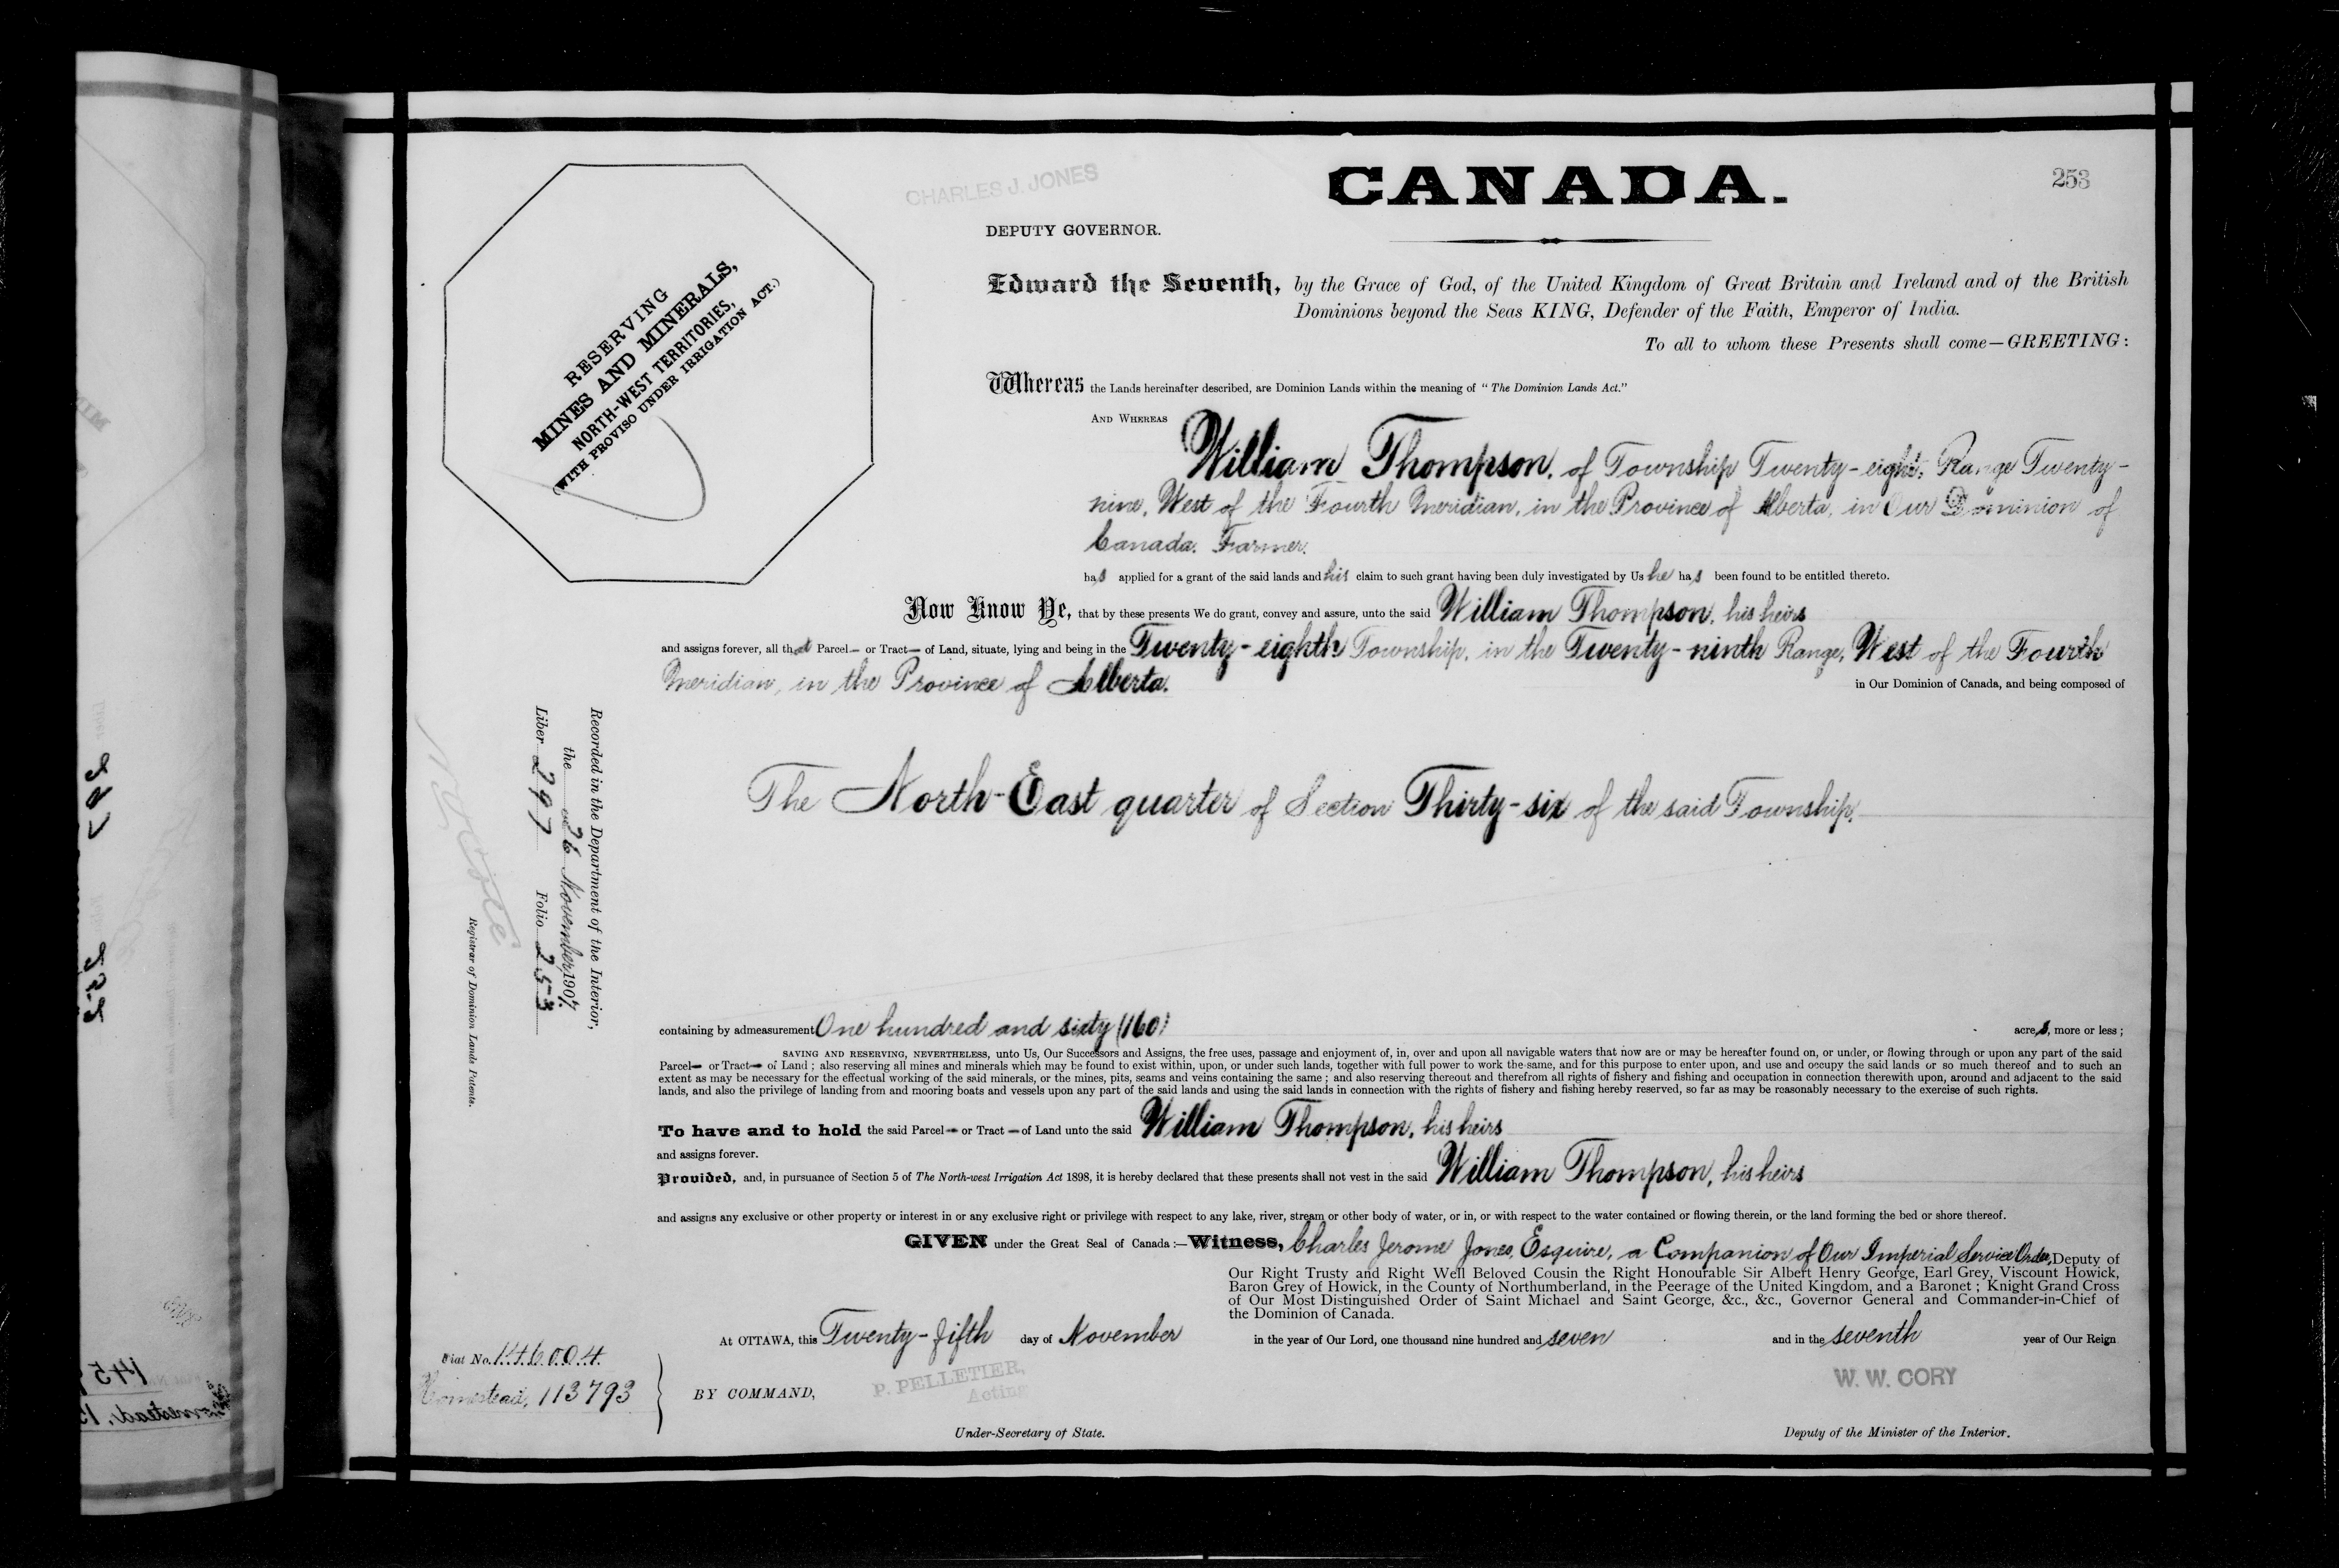 CHARLES J. JONES
CANADA.
253
DEPUTY GOVERNOR.
RESERVING
MINES AND MINERALS,
NORTH-WEST TERRITORIES,
(WITH PROVISO UNDER IRRIGATION ACT.)
Edward the Seventh, by the Grace of God, of the United Kingdom of Great Britain and Ireland and of the British
Dominions beyond the Seas KING, Defender of the Faith, Emperor of India.
To all to whom these Presents shall come—GREETING:
Whereas the Lands hereinafter described, are Dominion Lands within the meaning of "The Dominion Lands Act."
AND WHEREAS
William Thompson, of Township Twenty-eight, Range Twenty-
nine, West of the Fourth Meridian, in the Province of Alberta, in Our Dominion of
Canada. Farmer.
has applied for a grant of the said lands and his claim to such grant having been duly investigated by Us he has been found to be entitled thereto.
Now Know Ye, that by these presents We do grant, convey and assure, unto the said William Thompson, his heirs
and assigns forever, all that Parcel— or Tract— of Land, situate, lying and being in the Twenty-eighth Township, in the Twenty-ninth Range, West of the Fourth
Meridian, in the Province of Alberta. in Our Dominion of Canada, and being composed of
The North-East quarter of Section Thirty-six of the said Township.
Recorded in the Department of the Interior,
the 26 November, 1907.
Liber 297 Folio 253
Registrar of Dominion Lands Patents.
containing by admeasurement One hundred and sixty (160) acres, more or less;
SAVING AND RESERVING, NEVERTHELESS, unto Us, Our Successors and Assigns, the free uses, passage and enjoyment of, in, over and upon all navigable waters that now are or may be hereafter found on, or under, or flowing through or upon any part of the said
Parcel— or Tract— of Land; also reserving all mines and minerals which may be found to exist within, upon, or under such lands, together with full power to work the same, and for this purpose to enter upon, and use and occupy the said lands or so much thereof and to such an
extent as may be necessary for the effectual working of the said minerals, or the mines, pits, seams and veins containing the same; and also reserving thereout and therefrom all rights of fishery and fishing and occupation in connection therewith upon, around and adjacent to the said
lands, and also the privilege of landing from and mooring boats and vessels upon any part of the said lands and using the said lands in connection with the rights of fishery and fishing hereby reserved, so far as may be reasonably necessary to the exercise of such rights.
To have and to hold the said Parcel— or Tract— of Land unto the said William Thompson, his heirs
and assigns forever.
Provided, and, in pursuance of Section 5 of The North-west Irrigation Act 1898, it is hereby declared that these presents shall not vest in the said William Thompson, his heirs
and assigns any exclusive or other property or interest in or any exclusive right or privilege with respect to any lake, river, stream or other body of water, or in, or with respect to the water contained or flowing therein, or the land forming the bed or shore thereof.
GIVEN under the Great Seal of Canada:—Witness, Charles Jerome Jones, Esquire, a Companion of Our Imperial Service Order, Deputy of
Our Right Trusty and Right Well Beloved Cousin the Right Honourable Sir Albert Henry George, Earl Grey, Viscount Howick,
Baron Grey of Howick, in the County of Northumberland, in the Peerage of the United Kingdom, and a Baronet; Knight Grand Cross
of Our Most Distinguished Order of Saint Michael and Saint George, &c., &c., Governor General and Commander-in-Chief of
the Dominion of Canada.
At OTTAWA, this Twenty-fifth day of November in the year of Our Lord, one thousand nine hundred and seven and in the seventh year of Our Reign
Fiat No. 146004.
Homestead, 113793
BY COMMAND,
P. PELLETIER,
Acting
Under-Secretary of State.
W. W. CORY
Deputy of the Minister of the Interior.